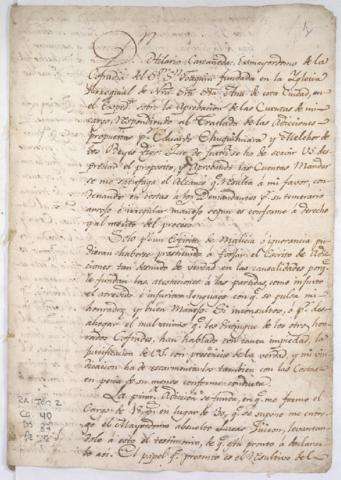 D. Hilario Castañeda, Exmayordomo de la
Cofradia del Sr. Sn. Joaquin fundada en la Iglecia
Parroquial de Nra. Sra. Sta. Ana de esta Ciudad, en
el Exped.te sobre la aprobacion de las Cuentas de mi
cargo, Respondiendo al Traslado de las Adiciones
propuestas pr. Eduardo y Melchor de
los Reyes digo: Que de Justa. se ha de servir VS. des
preciar el proposito, y Aprobando las Cuentas Mandar
se me satisfaga el alcance qe. resulta á mi favor, con
denando en costas á los Demandantes pr. su temerario
arrojo é irregular manejo segun es conforme á derecho
y al merito del proceso.
Solo pr. un Espiritu de Malicia ó ignorancia pu
dieran haberse prestado á forjar el Escrito de Adi
ciones tan desnudo de verdad en las causalidades porqe.
se fundan las atestaciones á las partidas, como injusto
el atrevido é infuriten lenguage con qe. se pulsa mi
honradez, y buen Manejo. Si insensibles, ó pr. des
ahogar el mal animo qe. les distingue de los otros hon
rados Cofrades, han hablado con tanta impiedad, la
justificacion de VS. con presencia de la verdad, y mi vin
dicacion ha de escarmentarlos tambien con las Costas
en pena de su menos conforme conducta.
La primª. Adicion se funda, en qe. me formo el
Cargo de en lugar de 30, qe. se supone me entre
gó el Mayordomo absuelto Lucas levantan
dolo á esto de testimonio, de qe. está pronto á declarar
lo asi. El papel qe. presento es el Resolutivo del
2A
CO 40